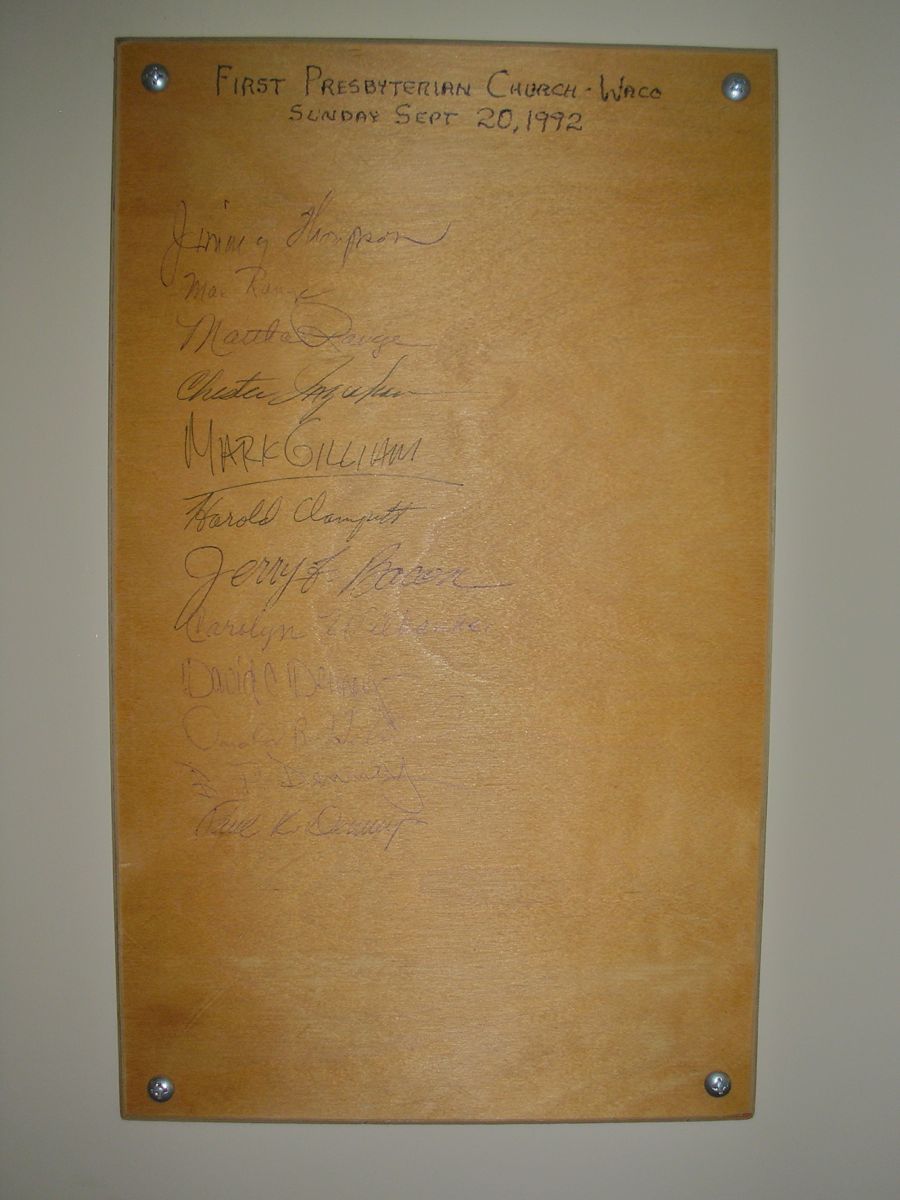 FIRST PRESBYTERIAN CHURCH - WACO
SUNDAY SEPT 20, 1992
Jimmy Thompson
Mac
Martha
Chester
MARK GILLIAM
Harold Clampitt
Jerry F. Bacon
Carolyn
David C Denny
T Denny
K. Denny